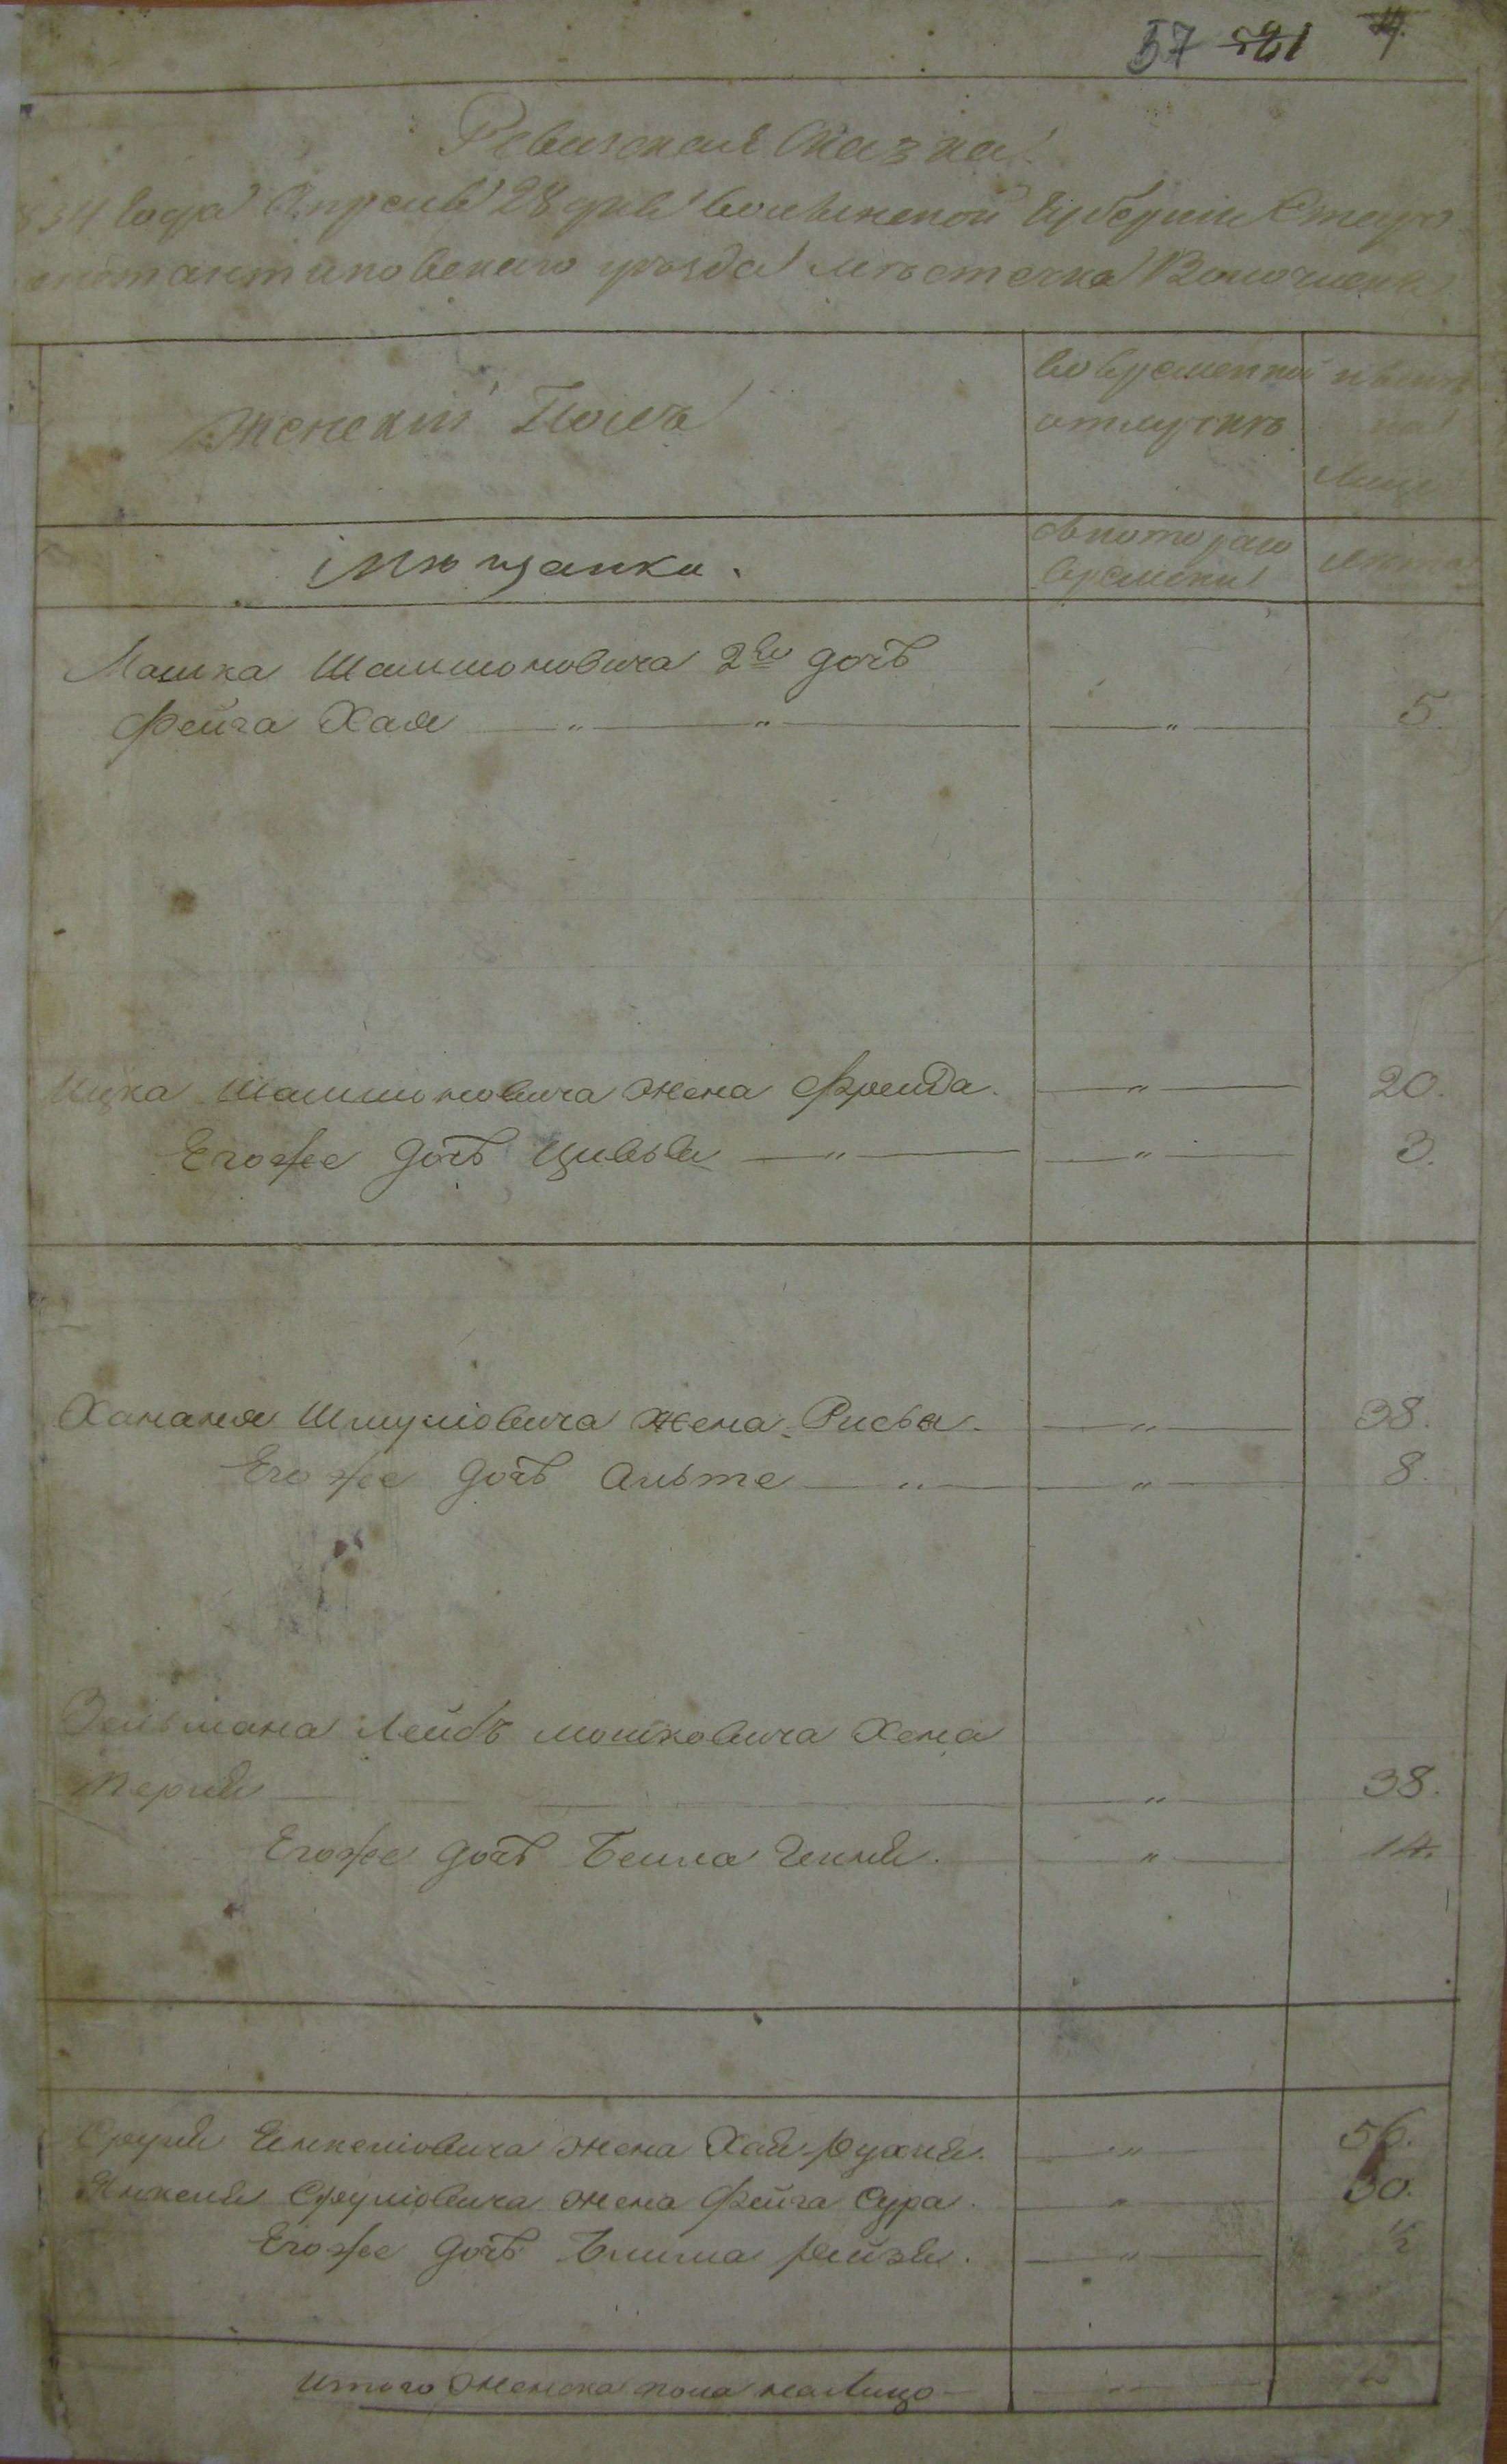 57 521 4
Ревизская Сказка
834 года Апреля 28 дня Волынской Губернии Старо
константиновскаго уезда местечка Волочиска
Женский Полъ
во временной
отлучке
ныне
на
лицо
Мещанки.
съкотораго
времени
лета
Мошка Шлиомовича 2го дочь
Фейга Хая — „ — „ — „ — 5.
Ицка Шлиомовича жена Фрейда. — „ — 20.
Егоже дочь Цивья — „ — „ — 3.
Ханания Шмулiовича жена Рися. — „ — 38.
Егоже дочь Альте — „ — „ — 8.
Зельмана Лейбъ Мошковича жена
— „ — 38.
Егоже дочь Бейла — „ — 14.
Сруля Янкелiовича жена Хая Рухля. — „ — 56.
Янкеля Срулiовича жена Фейга Сура. — „ — 30.
Егоже дочь Блима Рейзя. — „ — ½
Итого женска пола налицо — „ —